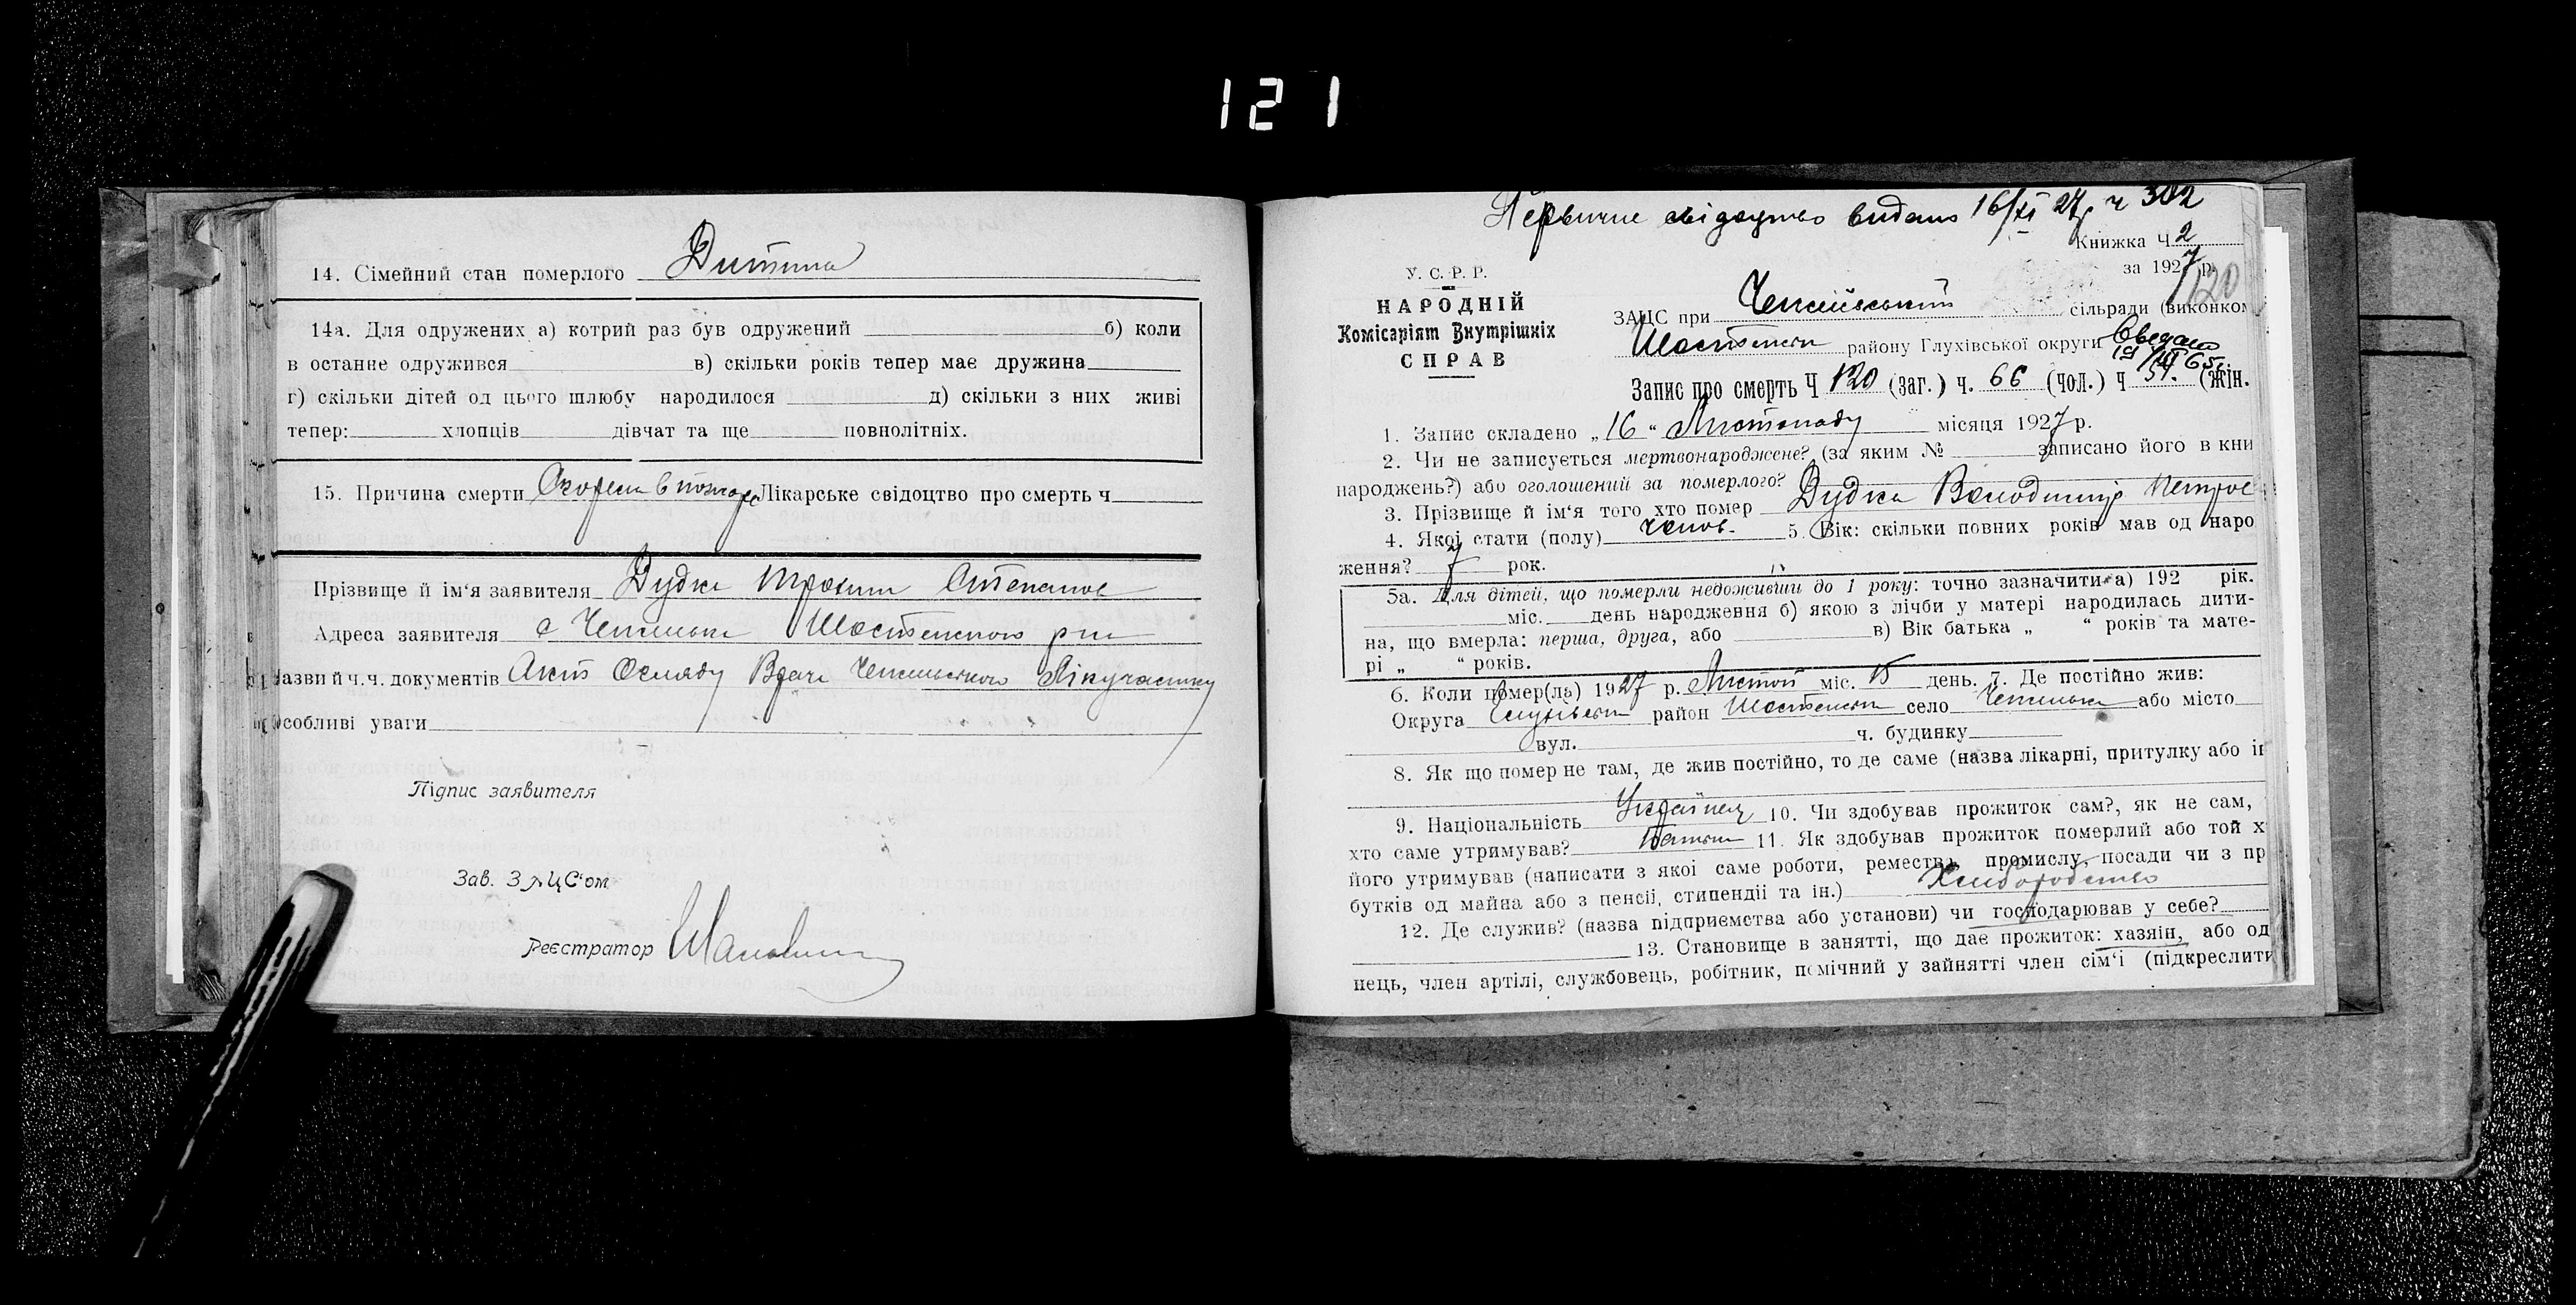 121
14. Сімейний стан померлого Дитина
14а. Для одружених а) котрий раз був одружений б) коли
в останне одружився в) скільки років тепер має дружина
г) скільки дітей од цього шлюбу народилося д) скільки з них живі
тепер: хлопців дівчат та ще повнолітніх.
15. Причина смерти в пожаре Лікарське свідоцтво про смерть ч
Прізвище й ім'я заявителя Дудка Степанов
Адреса заявителя с Шостенского р-на
Назви й ч.ч. документів Акт Огляду Врача
Особливі уваги
Підпис заявителя
Зав. ЗАЦС'ом
Реєстратор
Первичне свідоцтво видано 16/XI 27 р ч 302
Книжка Ч 2
за 1927 р.
120
У. С. Р. Р.
НАРОДНІЙ
Комісаріят Внутрішніх
СПРАВ
ЗАЦС при сільради (виконком
району Глухівської округи
Запис про смерть Ч 120 (заг.) ч. 66 (чол.) ч 54. (жін.
1. Запис складено „16" Листопаду місяця 1927 р.
2. Чи не записується мертвонароджене? (за яким № записано його в кни
народжень?) або оголошений за померлого?
3. Прізвище й ім'я того хто помер Дудка Володимир Петров
4. Якої стати (полу) челов. 5. Вік: скільки повних років мав од наро
ження? 7 рок.
5а. Для дітей, що померли недоживши до 1 року: точно зазначити а) 192 рік.
міс. день народження б) якою з лічби у матері народилась дити-
на, що вмерла: перша, друга, або в) Вік батька „ " років та мате-
рі „ " років.
6. Коли помер(ла) 1927 р. Листоп міс. 15 день. 7. Де постійно жив:
Округа Глухівськ район Шостенськ село або місто
вул. ч. будинку
8. Як що помер не там, де жив постійно, то де саме (назва лікарні, притулку або ін
9. Національність Українец 10. Чи здобував прожиток сам?, як не сам,
хто саме утримував? Батьки 11. Як здобував прожиток померлий або той х
його утримував (написати з якої саме роботи, ремества, промислу, посади чи з пр
бутків од майна або з пенсії, стипендії та ін.) Хлеборобство
12. Де служив? (назва підприємства або установи) чи господарював у себе?
13. Становище в занятті, що дає прожиток: хазяїн, або од
нець, член артілі, службовець, робітник, помічний у зайнятті член сім'ї (підкреслити